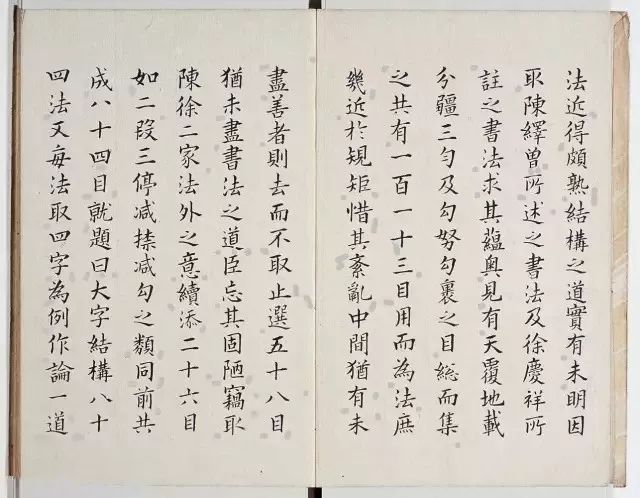 法近得頗熟結構之道實有未明因
取陳繹曽所述之書法及徐慶祥所
註之書法求其蘊奥見有天覆地載
分疆三勻及勾努勾裹之目総而集
之共有一百一十三目用而為法庶
幾近扵規矩惜其紊亂中間猶有未
盡善者則去而不取止選五十八目
猶未盡書法之道臣忘其固陋竊取
陳徐二家法外之意續添二十六目
如二段三停减㮈减勾之類同前共
成八十四目就題曰大字結構八十
四法又每法取四字為例作論一道